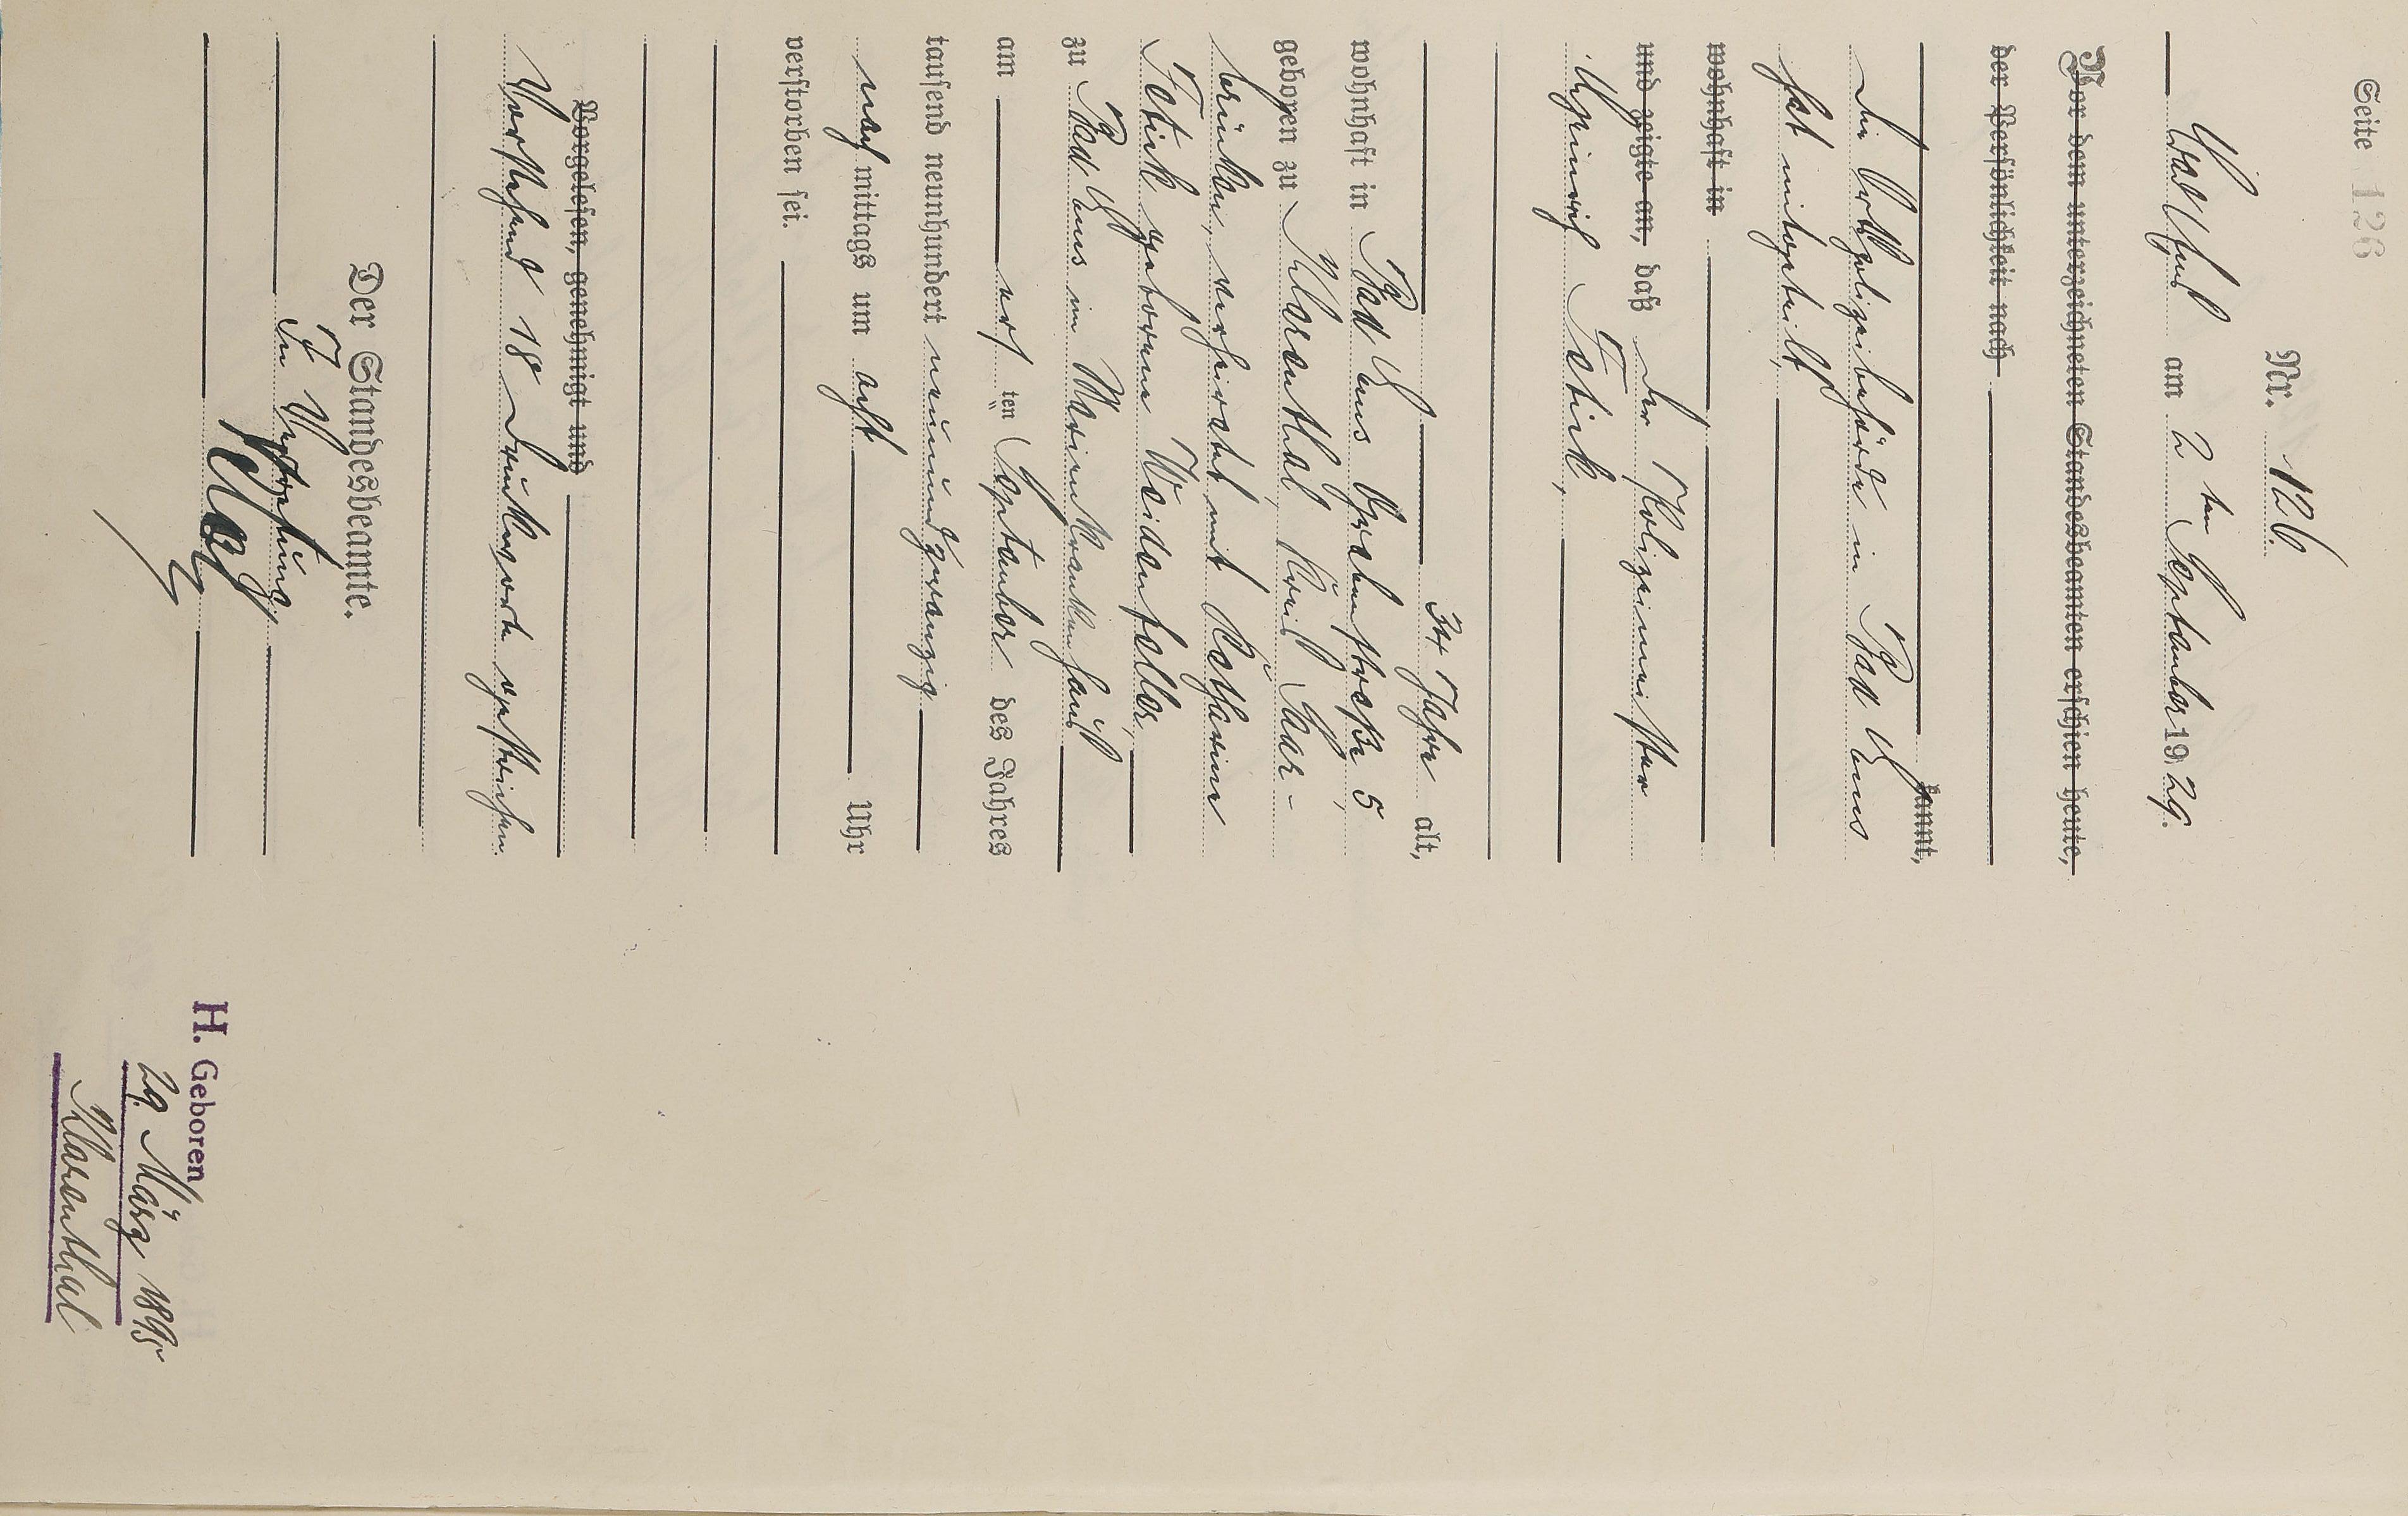 Seite 126
Nr. 126.
am 2ten September 1929.
Vor dem unterzeichneten Standesbeamten erschien heute,
der Persönlichkeit nach
kannt,
Die Ortspolizeibehörde in Bad Ems
hat mitgeteilt,
wohnhaft in
und zeigte an, daß der Polizeimeister
Heinrich Fetick,
34 Jahre alt,
wohnhaft in Bad Ems, Grabenstraße 5,
geboren zu Klarenthal, Kreis Saar-
brücken, verheiratet mit Katharina
Fetick geborene Weidenfeller,
zu Bad Ems im Marienkrankenhaus
am ersten September des Jahres
tausend neunhundert neunundzwanzig
nachmittags um acht Uhr
verstorben sei.
Vorgelesen, genehmigt und
Vorstehend 18 Druckworte gestrichen.
Der Standesbeamte.
In Vertretung
H. Geboren
29. März 1895
Klarenthal